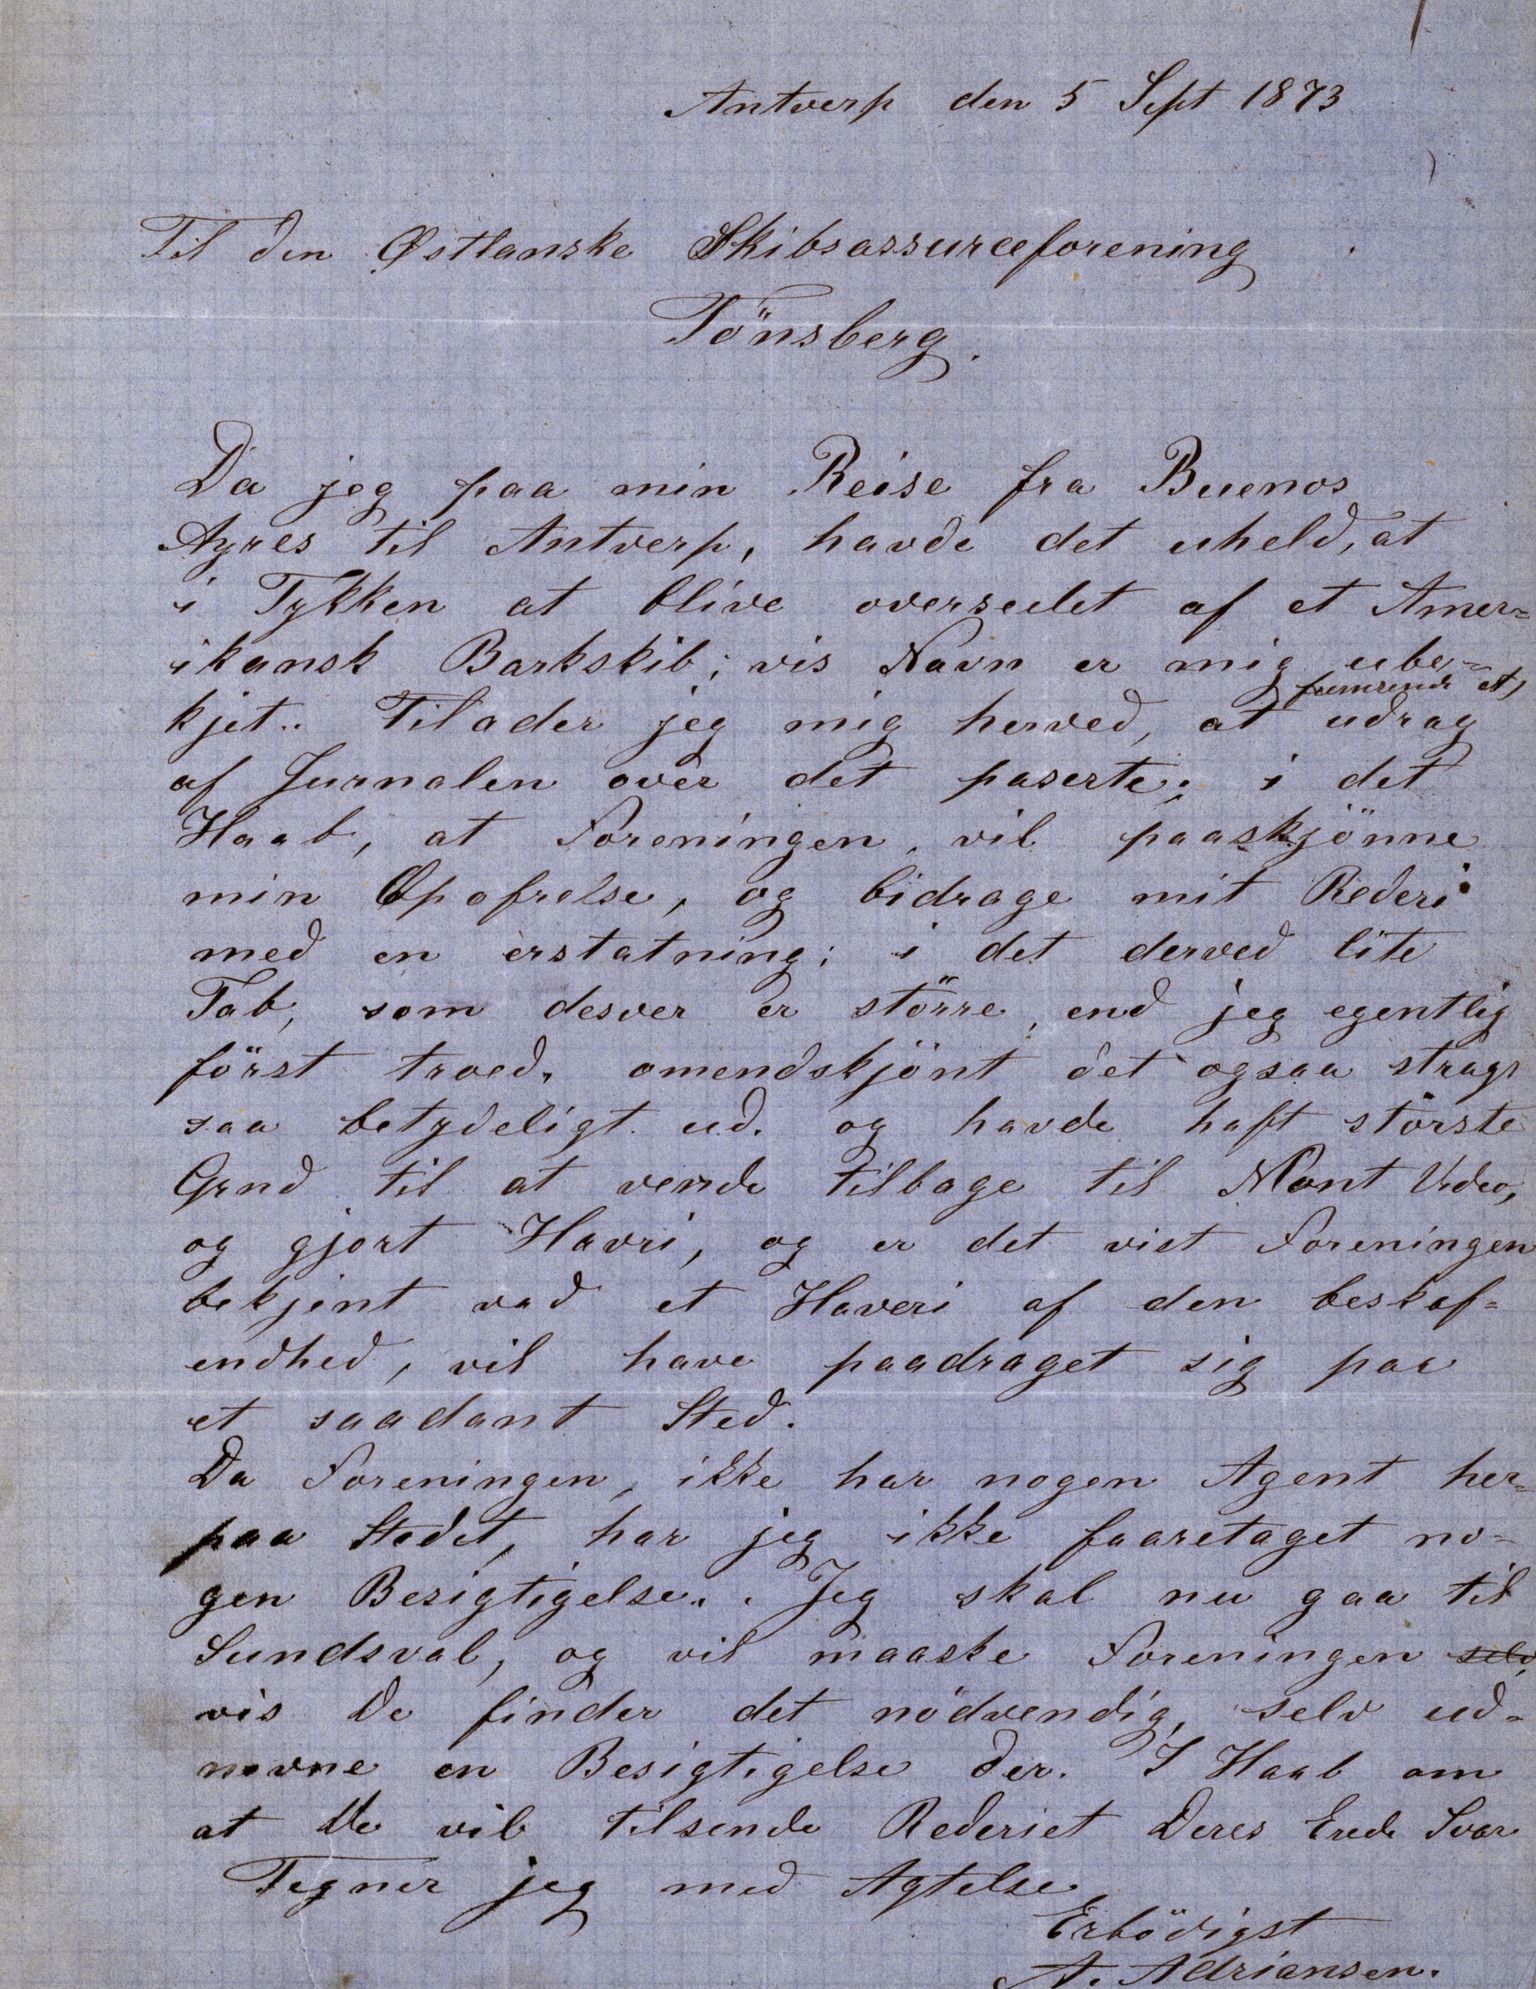 Antverp den 5 Sept 1873
Til den Østlanske Skibsassurceforening
Tönsberg.
Da jeg paa min Reise fra Buenos
Ayres til Antverp, havde det uheld, at
i Tykken at blive overseelet af et Amer=
ikansk Barkskib; vis Navn er mig ube=
kjet.. Tilader jeg mig herved, at fremsende et udrag
af Jurnalen over det paserte; i det
Haab, at Foreningen vil paaskjönne
min Opofrelse, og bidrage mit Rederi
med en erstatning; i det derved lite
Tab, som desver er större end jeg egentlig
först troed, omendskjönt det ogsaa strags
saa betydeligt ud. og havde haft störste
Grnd til at vende tilbage til Mont Video,
og gjort Havri, og er det vist Foreningen
bekjent vad et Haveri af den beskaf=
endhed, vil have paadraget sig paa
et saadant Sted.
Da Foreningen, ikke har nogen Agent her=
paa Stedet, har jeg ikke faaretaget no=
gen Besigtigelse. . Jeg skal nu gaa til
Sundsval, og vil maaske Foreningen selv
vis De finder det nödvendig, selv ud=
nevne en Besigtigelse der. I Haab om
at De vil tilsende Rederiet Deres Erede Svar
Tegner jeg med Agtelse
Erbödigst
A. Adriansen.